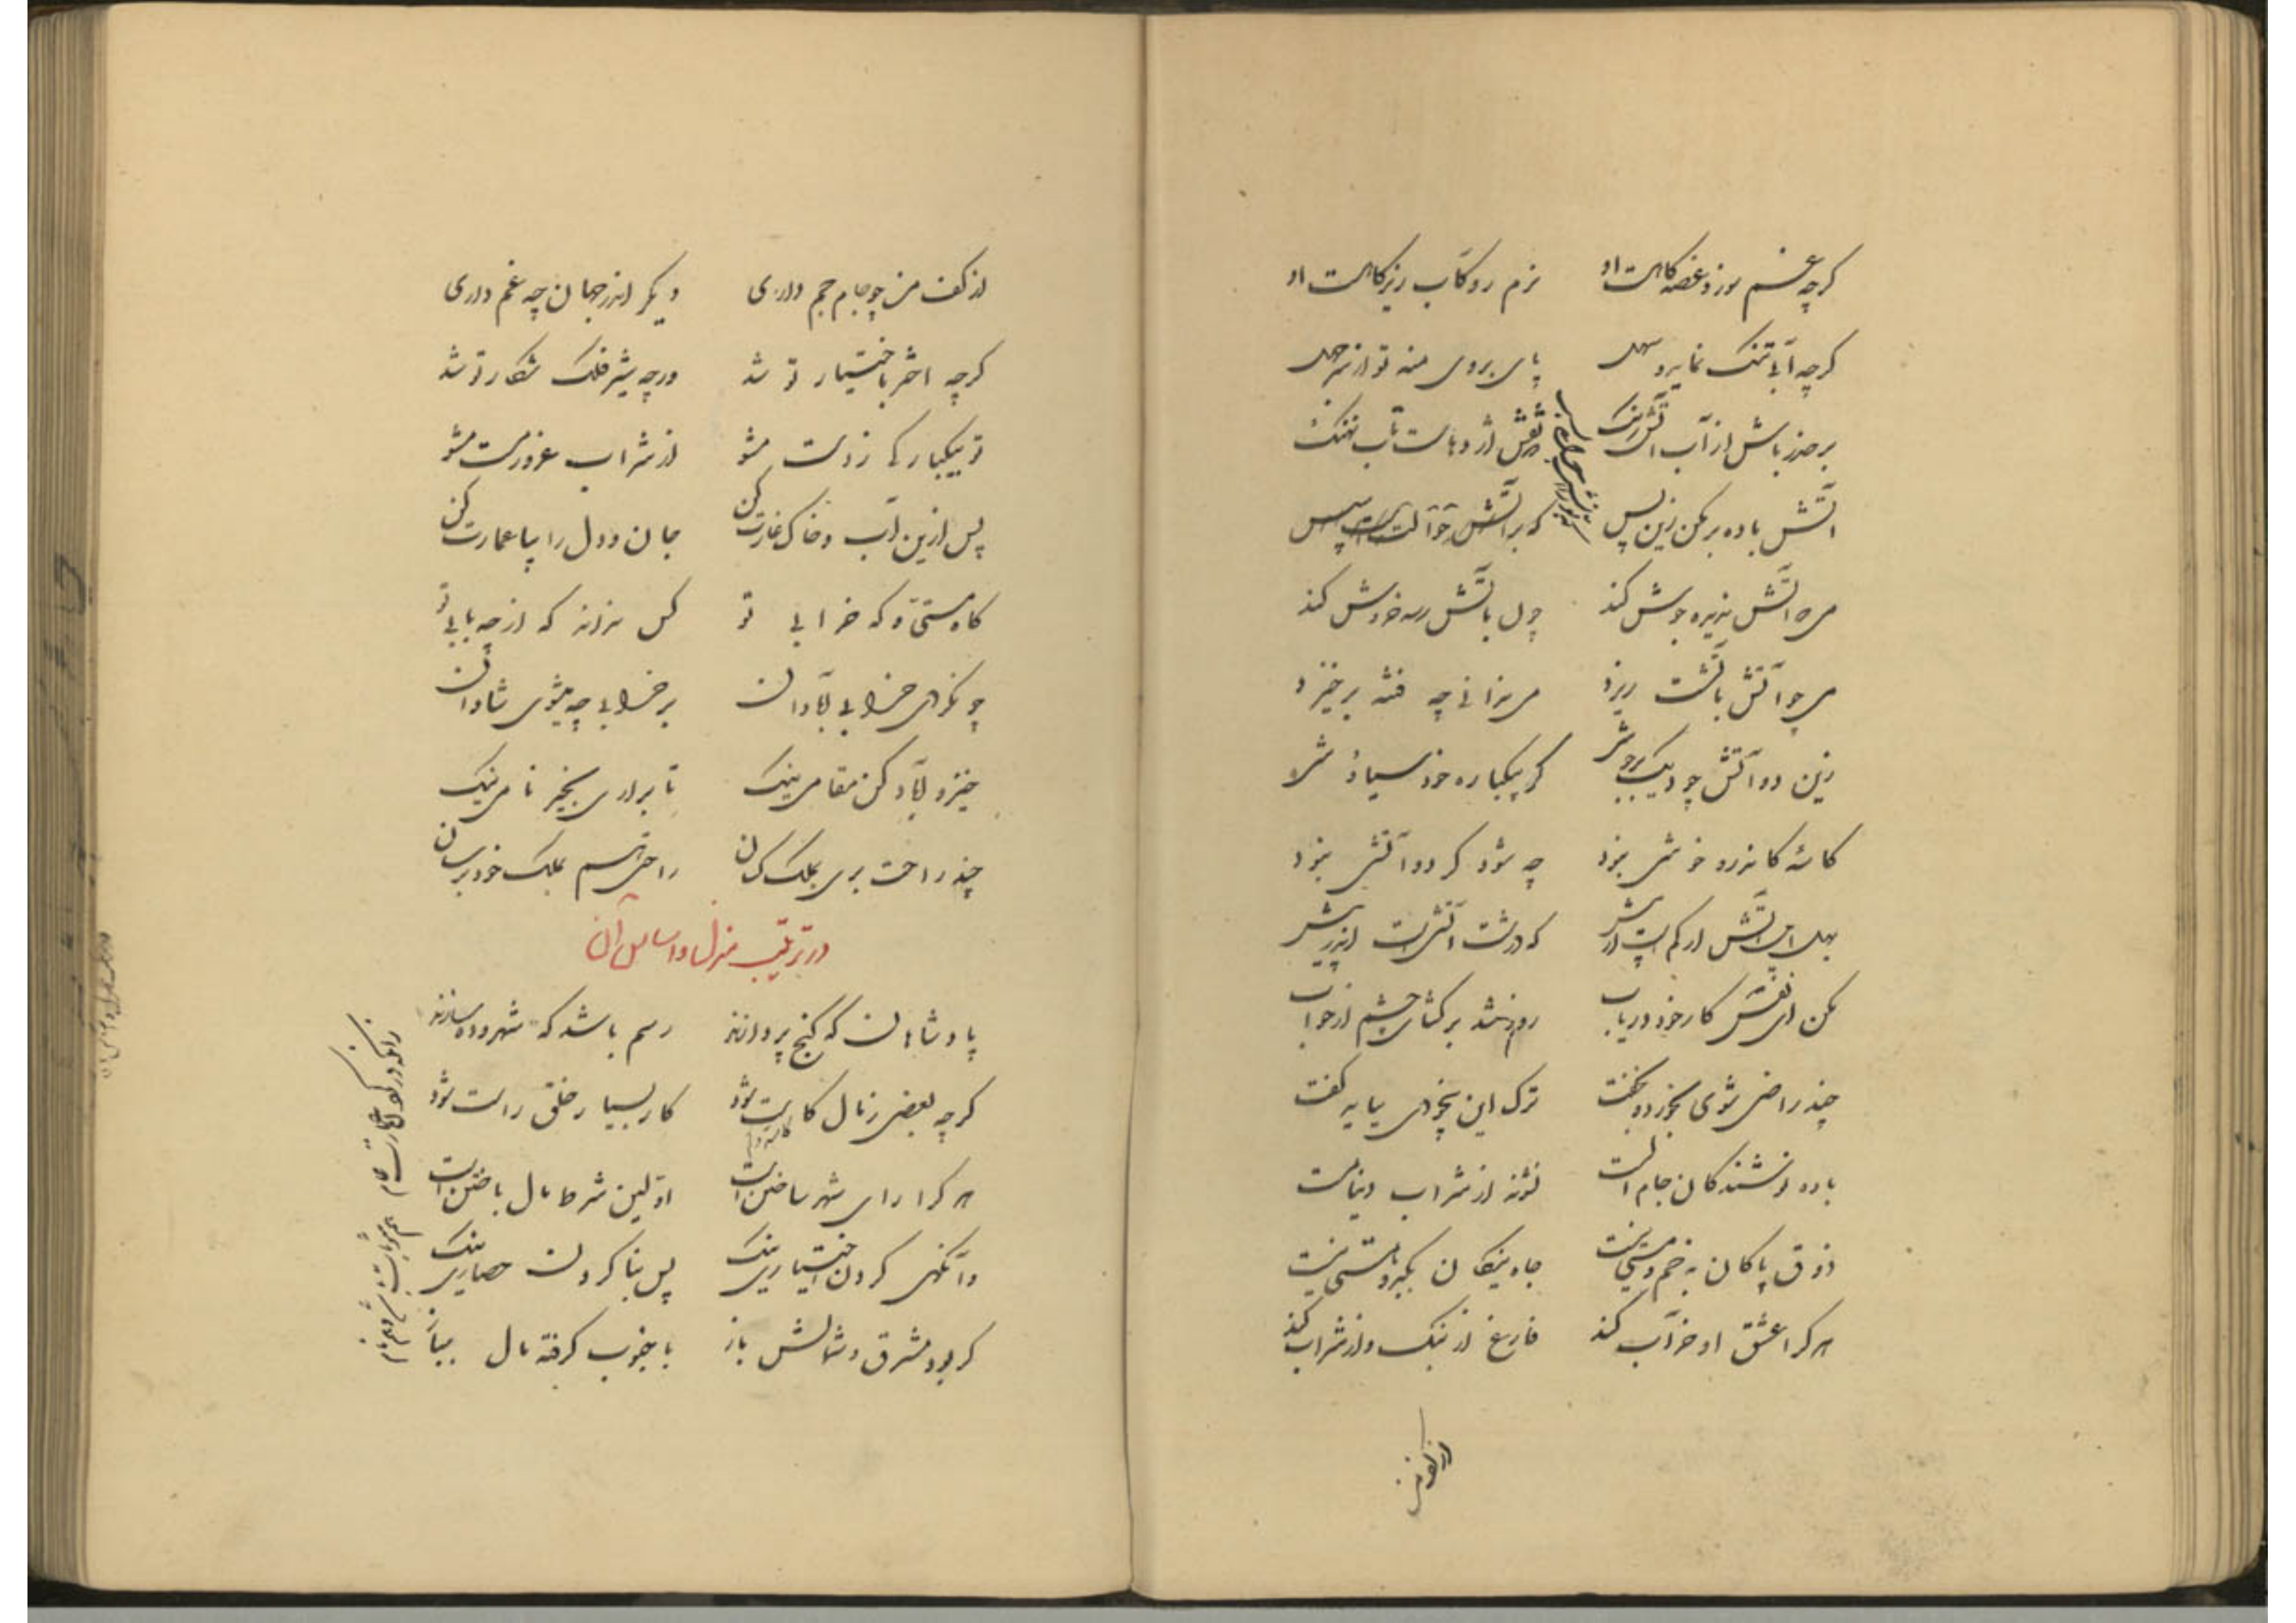 گرچه غم سوز و غصه کاهست او نرم رو کآب زیر کاهست او
گرچه آبی تنک نماید و سهل پای بر وی منه تو از سر جهل
بر حذر باش از آب آتش رنگ اژدهاست آب نهنگ
آتش باده بر مکن زین پس که بر آتش
می آتش نهیره جوش کند چون بآتش رسد خروش کند
می چو آتش بآتشت ریزد می ندانی چه فتنه برخیزد
زین دو آتش چو دیک بر جوشد گر بیکباره خود سیاه شد
کاسه کاندرو خوشی نبود چه شود گر دو آتشی نبود
بهل این آتش ار کم است ار بیش که درشت آتشیست اندر پیش
مکن ای نفس کار خود دریاب روز شد برگشای چشم از خواب
چند راضی شوی بخورد و بخفت ترک این بیخودی بباید گفت
باده نوشندگان جام الست نشوند از شراب دنیا مست
ذوق پاکان نه خم و مستی نیست جاه نیکان بکبر و هستی نیست
هر کرا عشق او خراب کند فارغ از بنک و از شراب کند
از کف من
از کف من چو جام جم داری دیگر اندر جهان چه غم داری
گرچه اختر باختیار تو شد ورچه شیر فلک شکار تو شد
تو بیکبارگی ز دست مشو از شراب غرور مست مشو
پس ازین آب و خاک غارت کن جان و دل را بیا عمارت کن
گاه مستی و گه خرابی تو کس نداند که از چه بابی تو
چو نکردی خرابی آبادان بر خرابی چه میشوی شادان
خیز و آباد کن مقامی نیک تا برآری بخیر نامی نیک
چند راحت بری بملک کسان راحتی هم بملک خود برسان
در ترتیب منزل و اساس آن
پادشاهان که گنج پردازند رسم باشد که شهر و ده سازند
گرچه بعضی ز مال کاست شود کار بسیار خلق راست شود
هر کرا رای شهر ساختن است اولین شرط مال باختن است
وآنگهی کردن اختیاری نیک پس بنا کردن حصاری نیک
گر بود مشرق و شمالش باز با جنوب گرفته مال بباز